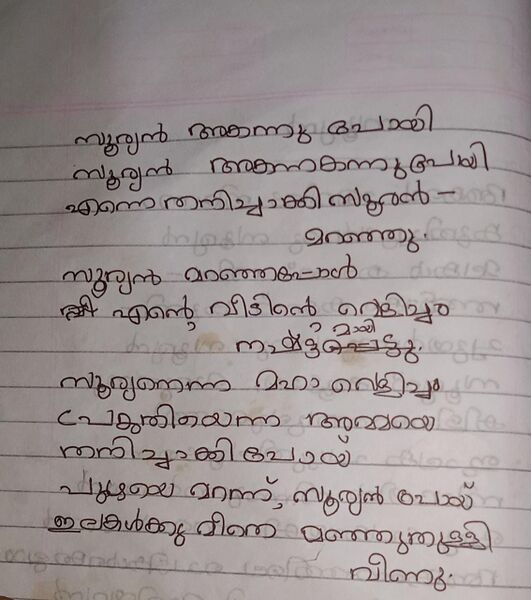 സൂര്യൻ അകന്നു പോയി
സൂര്യൻ അകന്നകന്നുപോയി
എന്നെ തനിച്ചാക്കി സൂര്യൻ -
മറഞ്ഞു.
സൂര്യൻ മറഞ്ഞപ്പോൾ
എന്റെ വീടിന്റെ വെളിച്ചം
നഷ്ടമായി
സൂര്യനെന്ന മഹാ വെളിച്ചം
പ്രകൃതിയെന്ന അമ്മയെ
തനിച്ചാക്കി പോയ്
മറന്ന്, സൂര്യൻ പോയ്
ഇലകൾക്കു മഞ്ഞുതുള്ളി
വീണു.